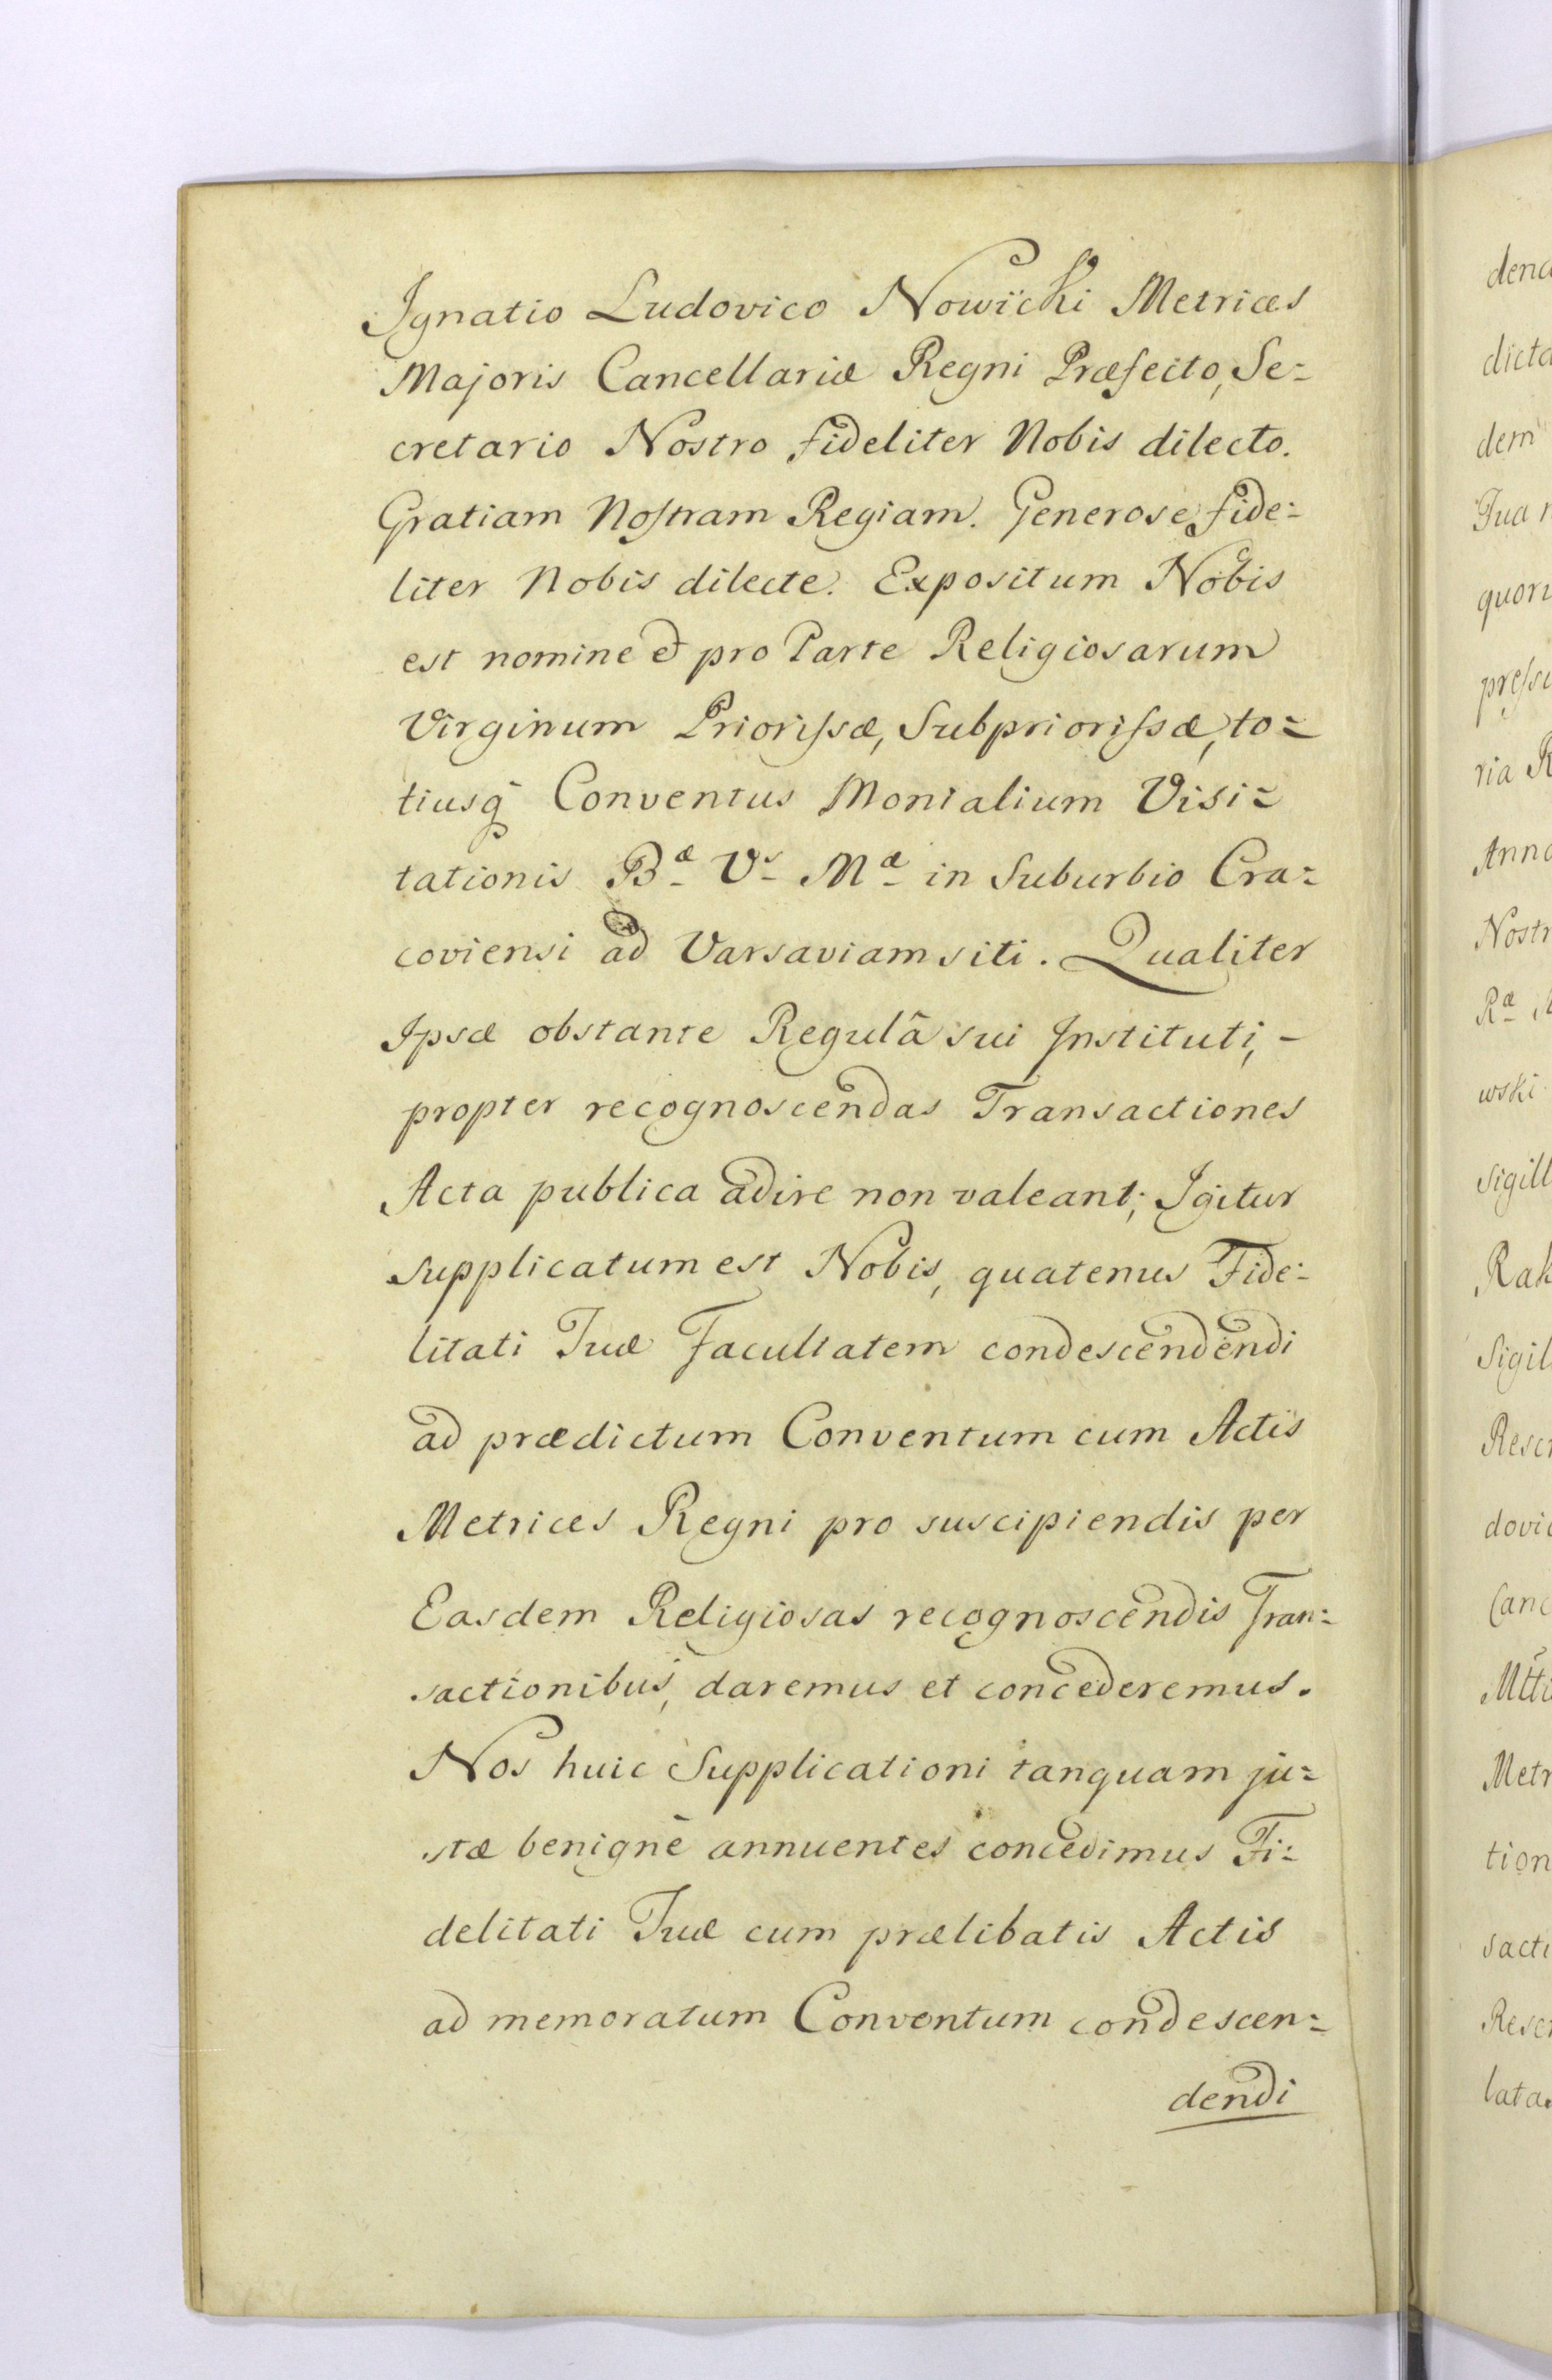 Ignatio Ludovico Nowicki Metrices
Majoris Cancellariæ Regni Præfecto, Se=
cretario Nostro fideliter Nobis dilecto.
Gratiam Nostram Regiam. Generose fide=
liter Nobis dilecte. Expositum Nobis
est nomine et pro Parte Religiosarum
Virginum Priorissæ, Subpriorissæ, to=
tiusq̃ Conventus Monialium Visi=
tationis Bæ Vs Mæ in Suburbio Cra=
coviensi ad Varsaviam siti. Qualiter
Ipsæ obstante Regulâ sui Instituti, -
propter recognoscendas Transactiones
Acta publica adire non valeant; Igitur
supplicatum est Nobis, quatenus Fide=
litati Tuæ Facultatem condescendendi
ad prædictum Conventum cum Actis
Metrices Regni pro suscipiendis per
Easdem Religiosas recognoscendis Tran=
sactionibus, daremus et concederemus.
Nos huic Supplicationi tanquam ju=
stæ benignè annuentes concedimus Fi=
delitati Tuæ cum prælibatis Actis
ad memoratum Conventum condescen=
dendi
dem
Nostr
wski
sigill
Sigil
Metr
tion
sacti
lata.